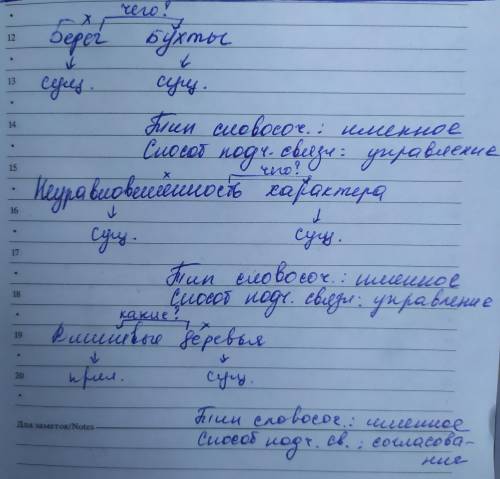 чего?
12 Берег бухты
13 сущ. сущ.
14 Тип словосоч.: именное
Способ подч. связи: управление
15 чего?
Неуравновешенность характера
16
сущ. сущ.
17
Тип словосоч.: именное
18 Способ подч. связи: управление
какие?
19 Вишнёвые деревья
20 прил. сущ.
Тип словосоч.: именное
Для заметок/Notes Способ подч. св.: согласова-
ние